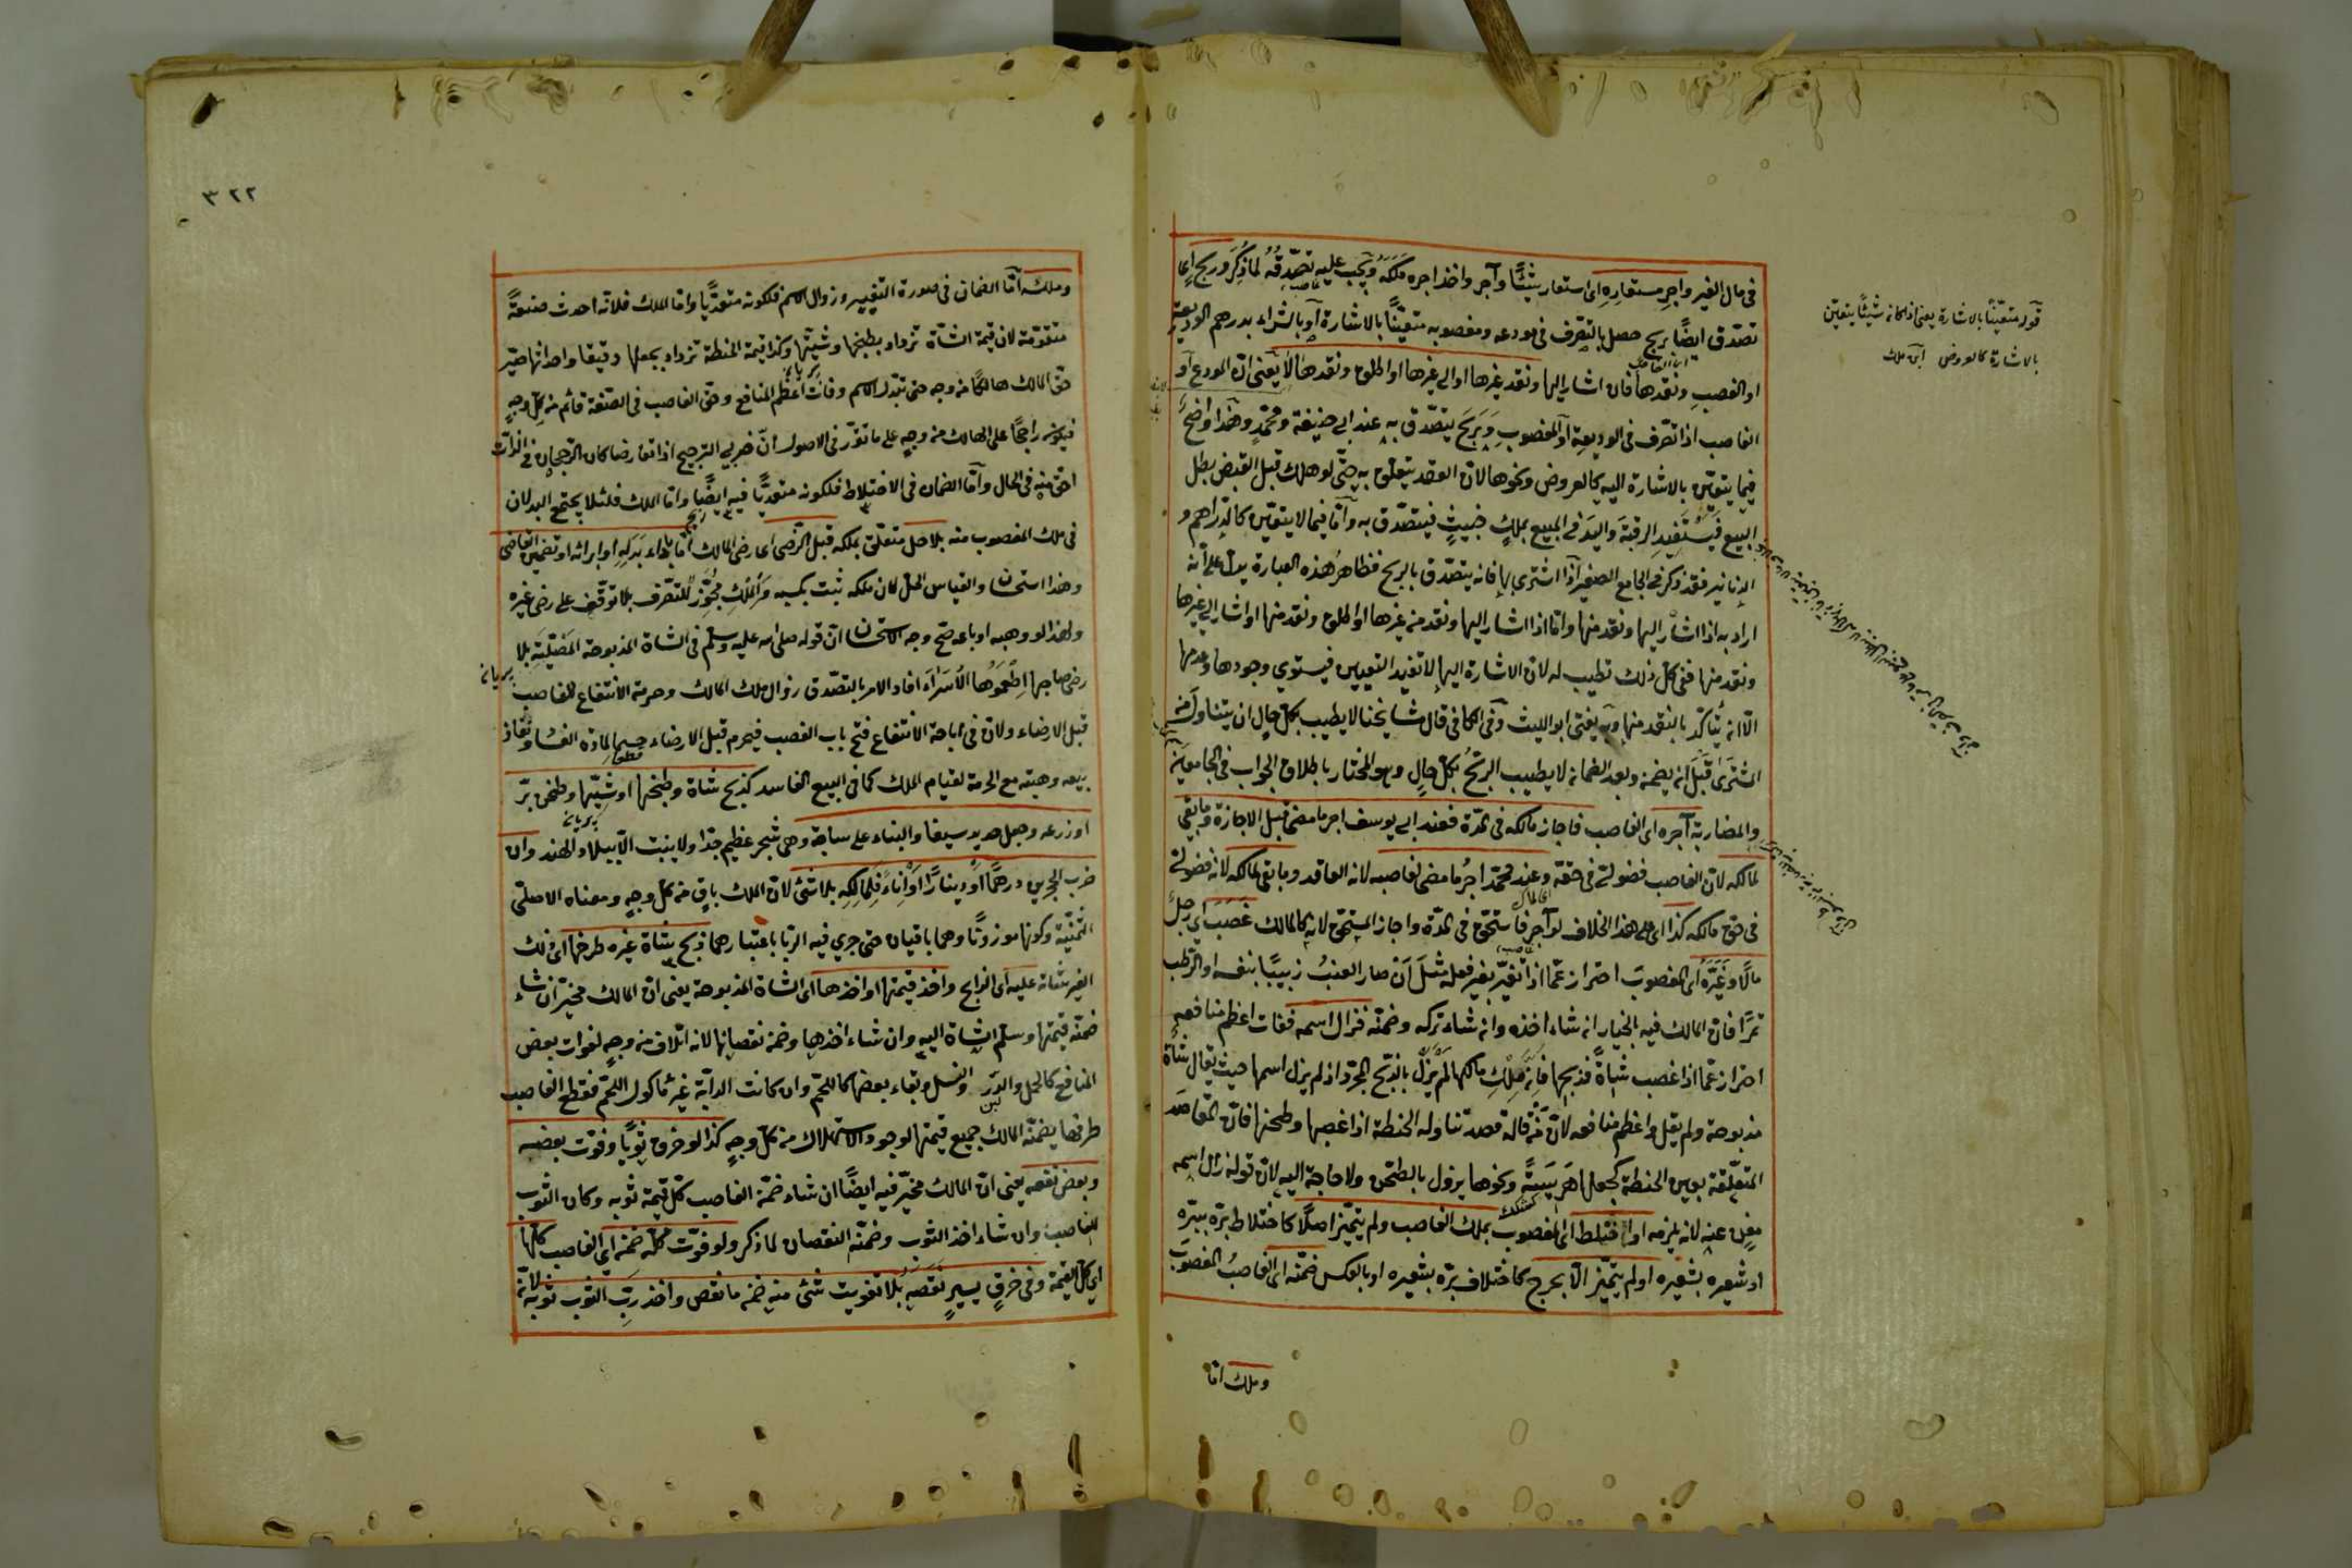 في مال الغير واجر مستعاره اى استعار شيئًا وآجر واخذ اجره مَلَكَهُ ويجب عليه تصدّقُهُ لما ذُكِرَ وربح اى
تصدّق ايضًا بربح حصل بالتصرّف في مودعه ومغصوبه متعيّنًا بالاشارة او بالشراء بدرهم الوديعة
او الغصبِ ونقدها فان اشار اليها ونقد غيرها او الى غيرها او اطلق ونقدها لا يعنى انّ المودع او
الغاصب اذا تصرّف فى الوديعة او المغصوبِ وَرَبَحَ يتصدّق به عند ابى حنيفة ومحمّدٍ وهذا واضحٌ
فيما يتعيّن بالاشارة اليه كالعروض ونحوها لانّ العقد يتعلّق به حتّى لو هلك قبل القبض بطل
البيع فيستفيد الرقبةَ واليدَ فى المبيع بملكٍ خبيثٍ فيتصدّق به وامّا فيما لا يتعيّن كالدراهم و
الدنانير فقد ذكر فى الجامع الصغير اذا اشترى بها فانه يتصدّق بالربح فظاهر هذه العبارة يدلّ على أنه
اراد به اذا اشار اليها ونقد منها وامّا اذا اشار اليها ونقد من غيرها او اطلق ونقد منها او اشار الى غيرها
ونقد منها ففى كلّ ذلك تطيب له لانّ الاشارة اليها لا تفيد التعيين فيستوي وجودها وعدمها
الّا انه يتأكّد بالنقد منها وبه يفتى ابو الليث وفى الكافى قال مشايخنا لا يطيب بكلّ حالٍ ان يتناول من
المشترَى قبل انه يضمنه وبعد الضمان لا يطيب الربحُ بكلّ حالٍ وهو المختار باطلاق الجواب فى الجامعين
والمضاربة آجره اى الغاصب فاجاز مالكه فى المدّة فعند ابى يوسف اجر ما مضى قبل الاجازة وما بقى
لمالكه لانّ الغاصب فضولىّ فى حقّه وعند محمّد اجرُ ما مضى لغاصبه لانه العاقد وما بقى لمالكه لانه فضولىّ
فى حقّ مالكه كذا اى على هذا الخلاف لو آجر فاستحقّ فى المدّة واجاز المستحقّ لانه كالمالك غصب اى رجلٌ
مالًا وغَيَّرَهُ اى المغصوبَ احتراز عمّا اذا تغيّر بغير فعله مثلَ اَنْ صار العنبُ زبيبًا بنفسه او الرطب
تمرًا فانّ المالك فيه بالخيار انه شاء اخذه وانه شاء تركه وضمنه فزال اسمه ففات اعظم منافعهِ
احتراز عمّا اذا غصب شاةً فذبحها فانّ مِلْكَ مالكها لم يَزُلْ بالذبح المجرّد اذ لم يزل اسمها حيث يقال شاة
مذبوحة ولم يقل واعظم منافعه لانّ مَنْ قاله قصد تناوله الحنطة اذا غصبها وطحنها فانّ المقاصد
المتعلّقة بعين الحنطة كجعلها هَرِيسَةً ونحوها يزول بالطحن ولا حاجة اليه لانّ قوله زال اسمه
مغنٍ عنه لانه يلزمه او اختلط اى المغصوب بملك الغاصب ولم يتميّز اصلًا كاختلاط برّه ببرّه
او شعيره بشعيره او لم يتميّز الّا بحرجٍ كاختلاف برّه بشعيره او بالعكس ضمنه اى الغاصبُ المغصوبَ
وملك امّا
قوله متعيّنًا بالاشارة يعنى اذا كانه شيئًا يتعيّن
بالاشارة كالعروض ابن ملك
٣٢٢
وملكه امّا الضمان فى صورة التغيير وزوال الاسم فلكونه متعدّيًا وامّا الملك فلانّه احدث صنعةً
متقوّمة لان قيمة الشاة تزداد بطبخها وشيّها وكذا قيمة الحنطة تزداد بجعلها دقيقا واحداثها صيّر
حقّ المالك هالكًا من وجه حتى تبدّل الاسم وفات اعظم المنافع وحقّ الغاصب فى الصنعة قائم من كلّ وجهٍ
فيكون راجحًا على الهالك من وجهٍ على ما تقرّر فى الاصول انّ ضربى الترجيح اذا تعارضا كان الرجحان فى الذات
احقّ منه فى الحال وامّا الضمان فى الاختلاط فلكونه متعدّيًا فيه ايضًا وامّا الملك فلئلا يجتمع البدلان
فى ملك المغصوب منه بلا حلّ متعلّق بملكه قبل الرّضى اى رضى المالك امّا باداء بدله او ابرائه او تضمين القاضى
وهذا استحسان والقياس الحلّ لان ملكه ثبت بكسبه والملك مجوّزٌ للتصرّف بلا توقّف على رضى غيره
ولهذا لو وهبه او باعه صحّ وجه الاستحسان انّ قوله صلى الله عليه وسلم فى الشاة المذبوحة المَصْلِيَّةِ بلا
رضى صاحبها اَطْعِمُوهَا الْاُسَرَاءَ افاد الامر بالتصدّق زوال ملك المالك وحرمة الانتفاع للغاصب
قبل الارضاء ولانّ فى اباحة الانتفاع فتح باب الغصب فيحرم قبل الارضاء حسما لمادة الفساد ونفاذ
بيعه وهبته مع الحرمة لقيام الملك كما فى البيع الفاسد كذبح شاة وطبخها او شيّها وطحن برّ
او زرعه وجعل حديد سيفا والبناء على ساجة وهى شجر عظيم جدّا ولا ينبت الّا ببلاد الهند وان
ضرب الحجرين درهمًا او دينارًا او اناءً فلمالكه بلا شئ لانّ الملك باقٍ من كلّ وجهٍ ومعناه الاصلىّ
الثمنيّة وكونها موزونًا وهما باقيان حتى جرى فيه الربا باعتبارهما ذبح شاة غيره طرحها اى ذلك
الغير شاته عليه اى الذابح واخذ قيمتها او اخذها اى الشاة المذبوحة يعنى انّ المالك مخيّر ان شاء
ضمنه قيمتها وسلّم الشاة اليه وان شاء اخذها وضمنه نقصانها لانه اتلاف من وجهٍ لفوات بعض
المنافع كالحمل والدرّ والنسل وبقاء بعضها كاللحم وان كانت الدابّة غير مأكول اللحم فقطع الغاصب
طرفها يضمنه المالك جميع قيمتها لوجود الاستهلاك من كلّ وجهٍ كذا لو خرق ثوبًا وفوّت بعضه
وبعض نفعه يعنى انّ المالك مخيّر فيه ايضًا ان شاء ضمّن الغاصب كلّ قيمة ثوبه وكان الثوب
للغاصب وان شاء اخذ الثوب وضمنه النقصان لما ذكر ولو فوّت كلّه ضمنه اى الغاصب كلّها
اى كلّ القيمة وفى خرقٍ يسيرٍ نقصه بلا تفويت شئ منه ضمنه ما نقص واخذ ربّ الثوب ثوبه لانه